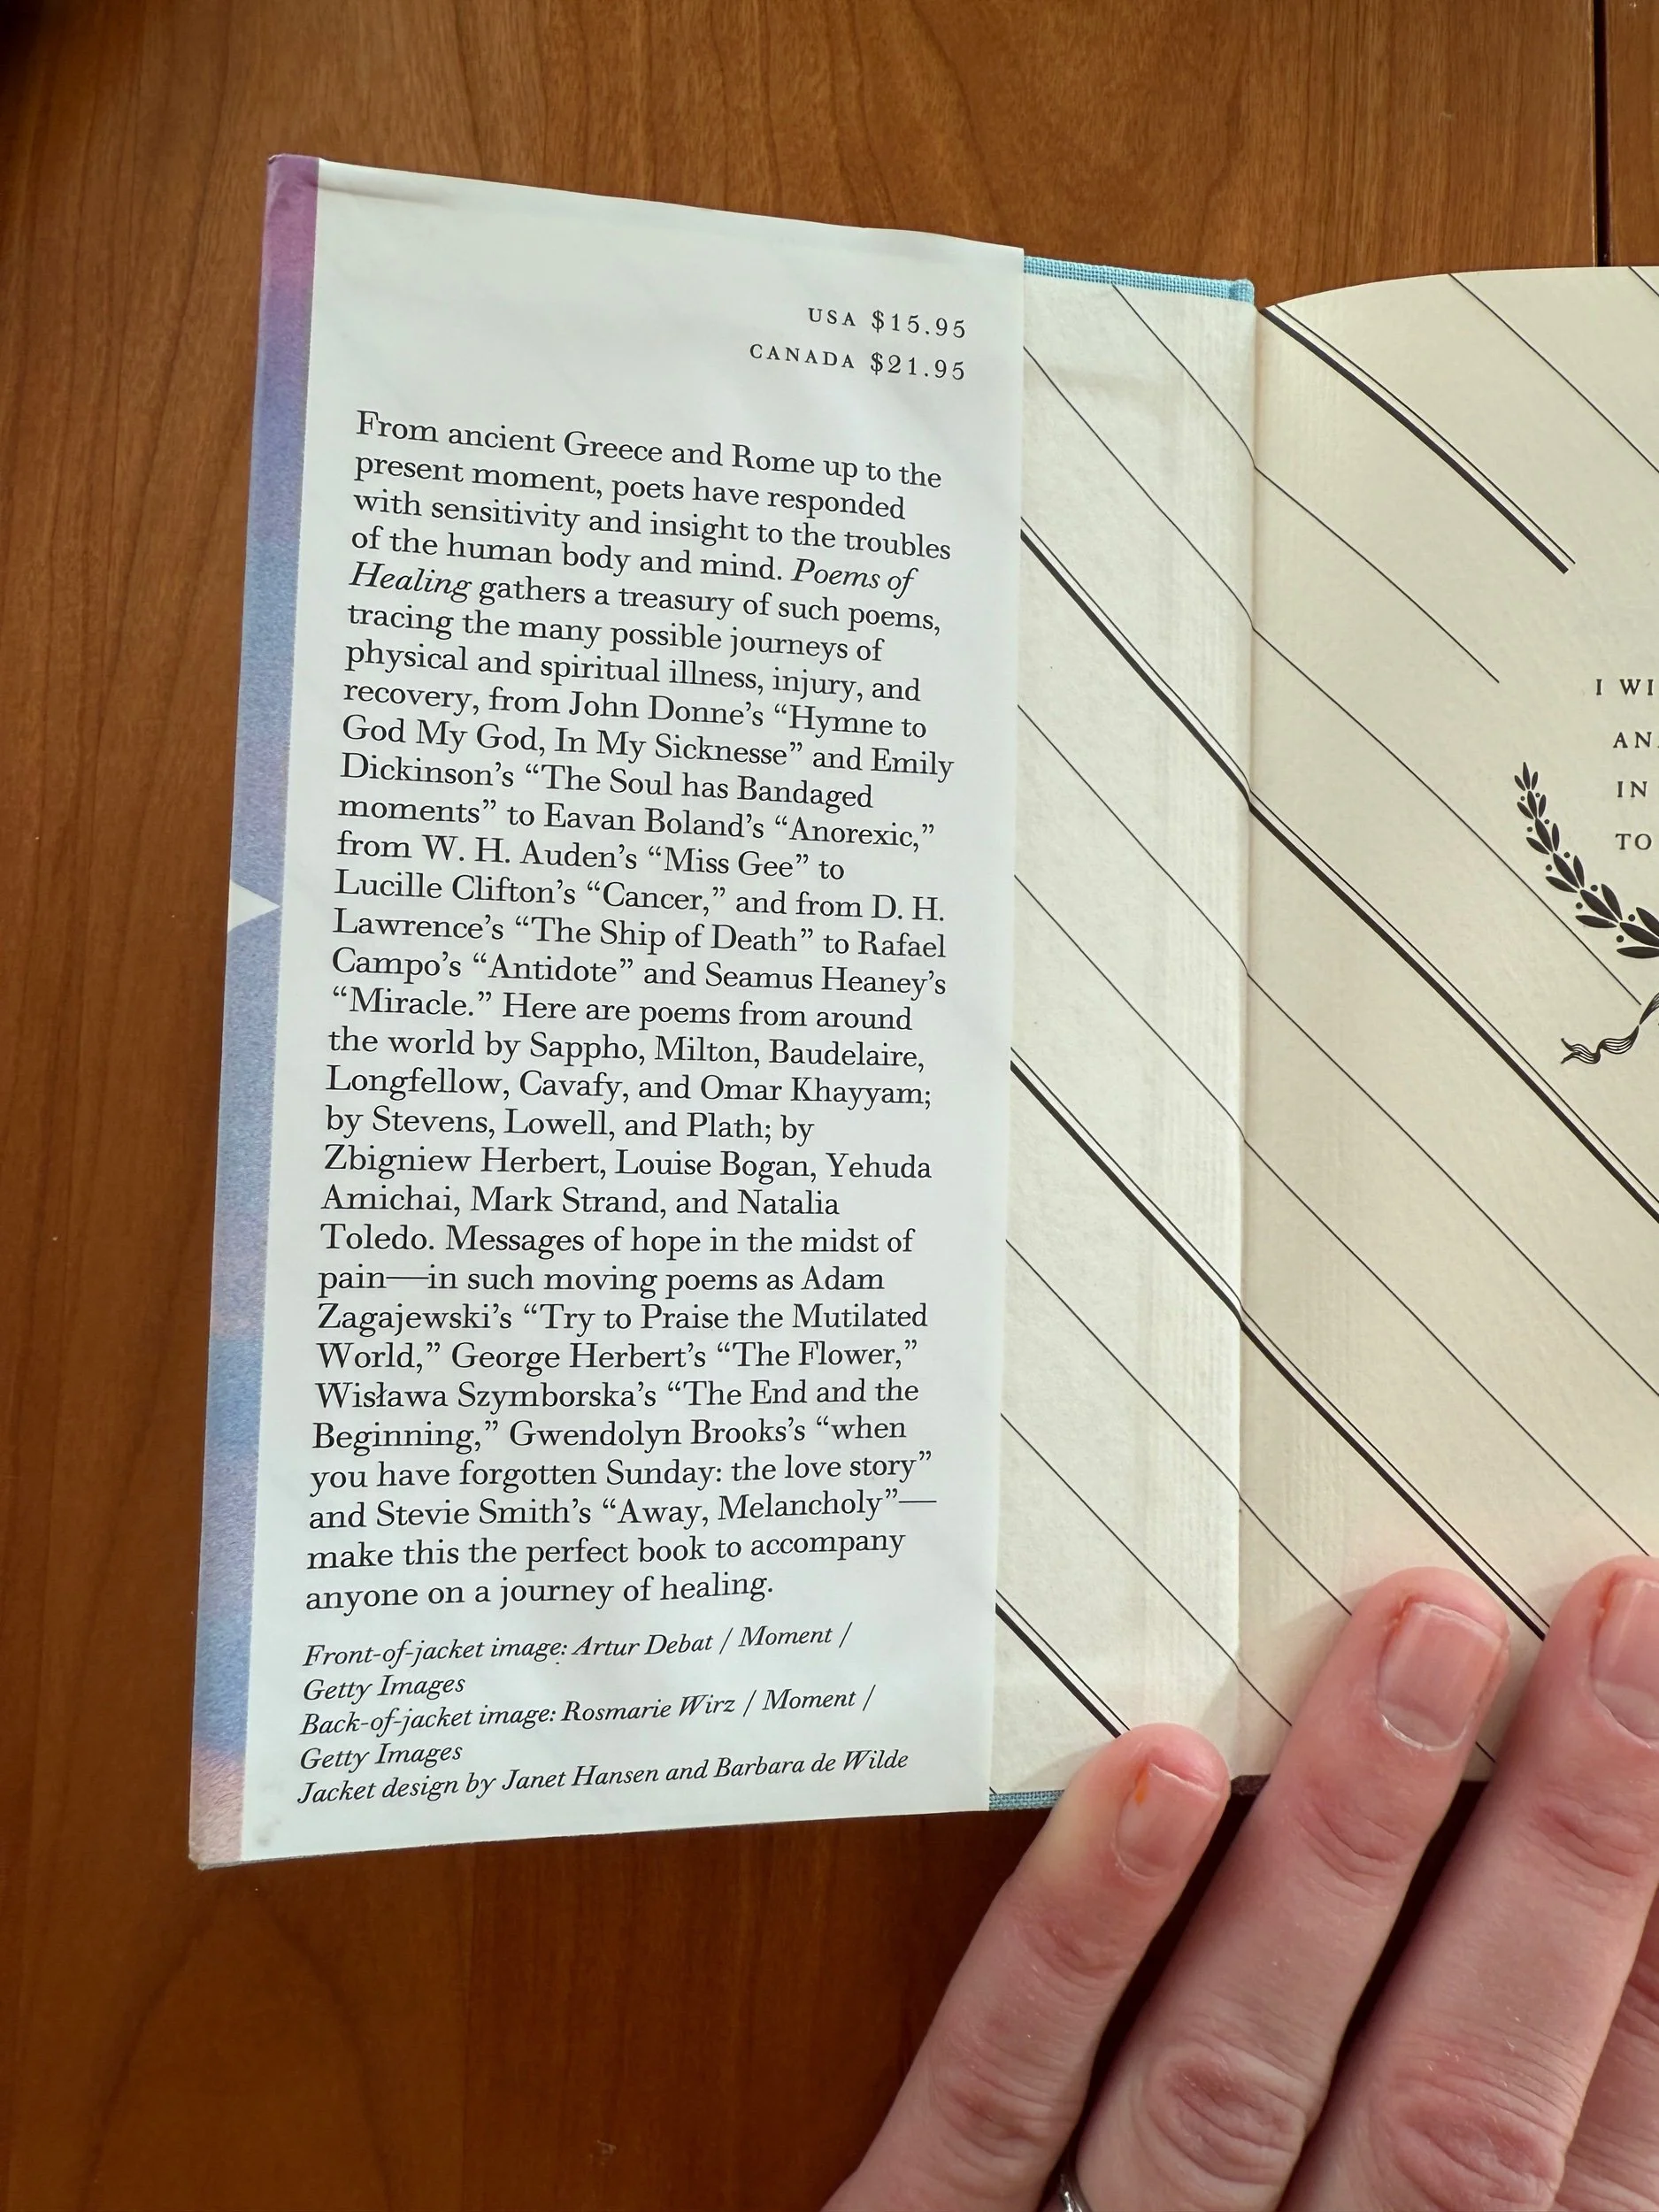 USA $15.95
CANADA $21.95
From ancient Greece and Rome up to the
present moment, poets have responded
with sensitivity and insight to the troubles
of the human body and mind. Poems of
Healing gathers a treasury of such poems,
tracing the many possible journeys of
physical and spiritual illness, injury, and
recovery, from John Donne’s “Hymne to
God My God, In My Sicknesse” and Emily
Dickinson’s “The Soul has Bandaged
moments” to Eavan Boland’s “Anorexic,”
from W. H. Auden’s “Miss Gee” to
Lucille Clifton’s “Cancer,” and from D. H.
Lawrence’s “The Ship of Death” to Rafael
Campo’s “Antidote” and Seamus Heaney’s
“Miracle.” Here are poems from around
the world by Sappho, Milton, Baudelaire,
Longfellow, Cavafy, and Omar Khayyam;
by Stevens, Lowell, and Plath; by
Zbigniew Herbert, Louise Bogan, Yehuda
Amichai, Mark Strand, and Natalia
Toledo. Messages of hope in the midst of
pain—in such moving poems as Adam
Zagajewski’s “Try to Praise the Mutilated
World,” George Herbert’s “The Flower,”
Wisława Szymborska’s “The End and the
Beginning,” Gwendolyn Brooks’s “when
you have forgotten Sunday: the love story”
and Stevie Smith’s “Away, Melancholy”—
make this the perfect book to accompany
anyone on a journey of healing.
Front-of-jacket image: Artur Debat / Moment /
Getty Images
Back-of-jacket image: Rosmarie Wirz / Moment /
Getty Images
Jacket design by Janet Hansen and Barbara de Wilde
I
IN
TO